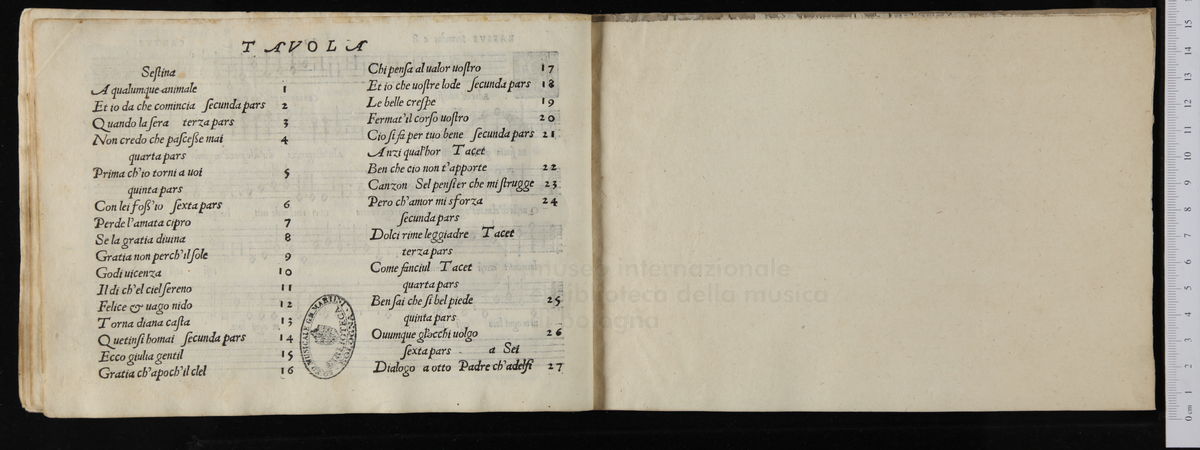 TAVOLA
Sestina
A qualumque animale 1
Et io da che comincia secunda pars 2
Quando la sera terza pars 3
Non credo che pascesse mai 4
quarta pars
Prima ch'io torni a uoi 5
quinta pars
Con lei foss'io sexta pars 6
Perde l'amata cipro 7
Se la gratia diuina 8
Gratia non perch'il sole 9
Godi uicenza 10
Il di ch'el ciel sereno 11
Felice & uago nido 12
Torna diana casta 13
Quetinsi homai secunda pars 14
Ecco giulia gentil 15
Gratia ch'apoch'il ciel 16
Chi pensa al ualor uostro 17
Et io che uostre lode secunda pars 18
Le belle crespe 19
Fermat'il corso uostro 20
Cio si fa per tuo bene secunda pars 21
Anzi qual'hor Tacet
Ben che cio non t'apporte 22
Canzon Sel pensier che mi strugge 23
Pero ch'amor mi sforza 24
secunda pars
Dolci rime leggiadre Tacet
terza pars
Come fanciul Tacet
quarta pars
Ben sai che si bel piede 25
quinta pars
Ouumque gl'occhi uolgo 26
sexta pars a Sei
Dialogo a otto Padre ch'adelsi 27
museo internazionale
e biblioteca della musica
bologna